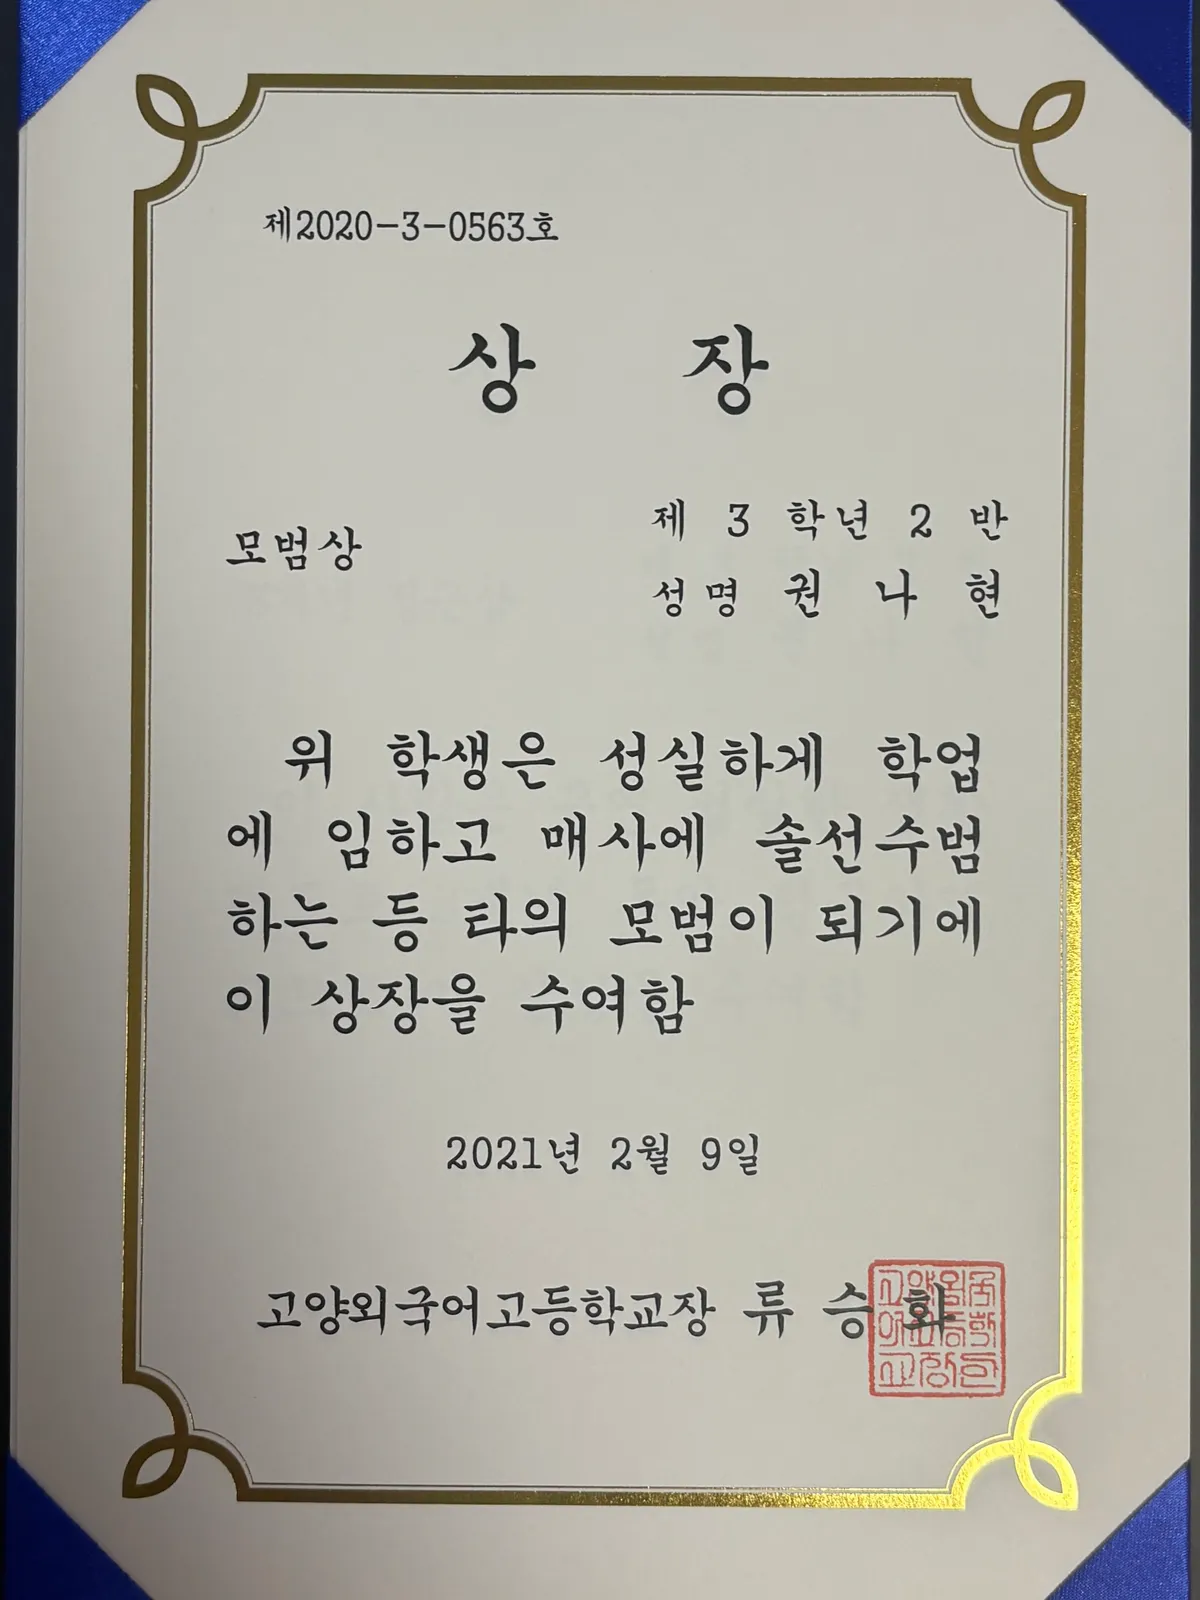 제2020-3-0563호
상 장
모범상
제 3 학년 2 반
성명 권 나 현
위 학생은 성실하게 학업
에 임하고 매사에 솔선수범
하는 등 타의 모범이 되기에
이 상장을 수여함
2021년 2월 9일
고양외국어고등학교장 류 승 화
고양외국
어고등학
교장인